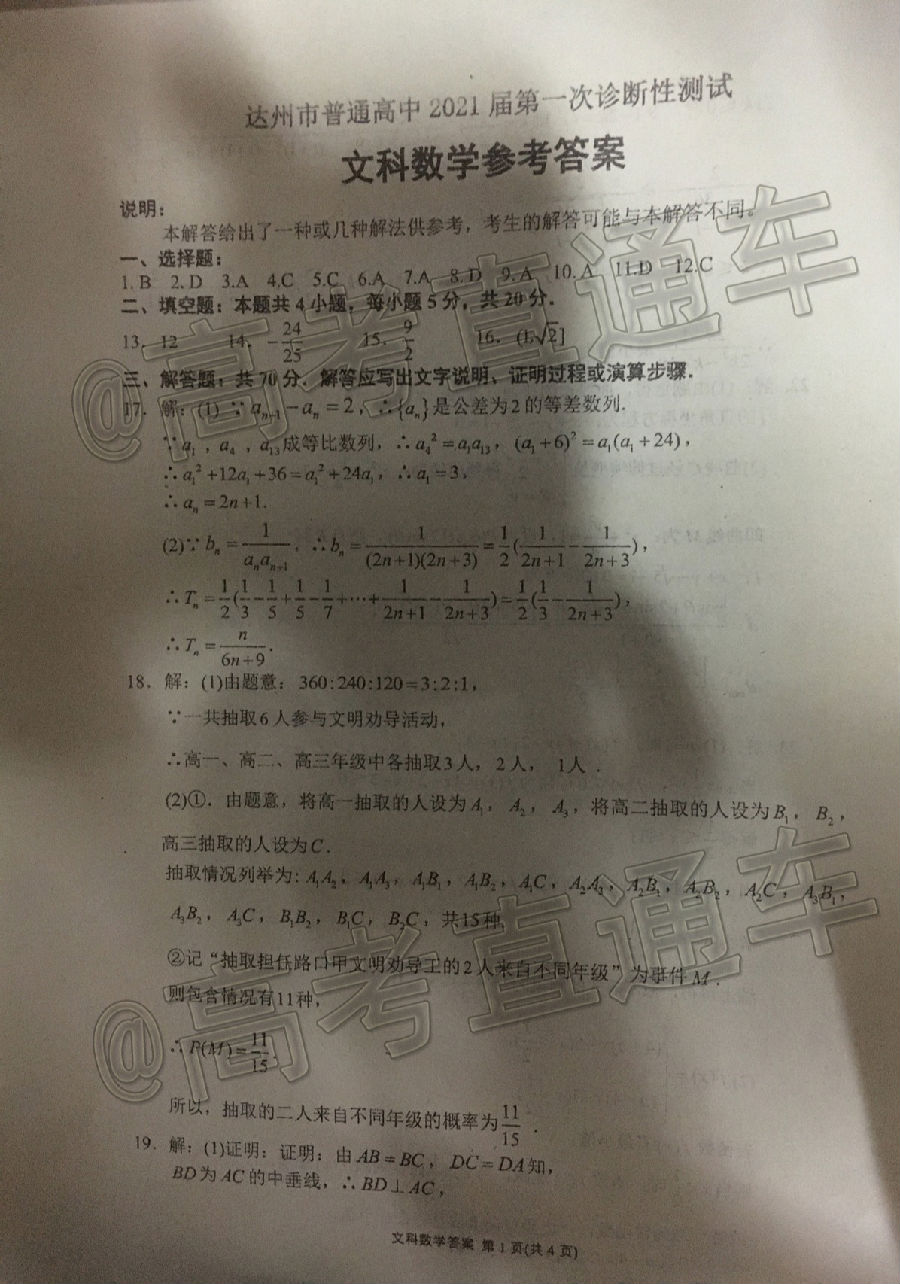 达州市普通高中2021届第一次诊断性测试
文科数学参考答案
说明:
本解答给出了一种或几种解法供参考，考生的解答可能与本解答不同。
一、选择题:
1.B 2.D 3.A 4.C 5.C 6.A 7.A 8.D 9.A 10.A 11.D 12.C
二、填空题：本题共4小题，每小题5分，共20分．
13．12 14．-24/25 15．9/2 16．(1,√2]
三、解答题：共70分．解答应写出文字说明、证明过程或演算步骤．
17．解：(1) ∵a_{n+1}-a_n=2，∴{a_n}是公差为2的等差数列.
∵a_1，a_4，a_13成等比数列，∴a_4²=a_1a_13，(a_1+6)²=a_1(a_1+24)，
∴a_1²+12a_1+36=a_1²+24a_1，∴a_1=3，
∴a_n=2n+1.
(2)∵b_n=1/(a_na_{n+1})，∴b_n=1/((2n+1)(2n+3))=1/2(1/(2n+1)-1/(2n+3))，
∴T_n=1/2(1/3-1/5+1/5-1/7+…+1/(2n+1)-1/(2n+3))=1/2(1/3-1/(2n+3))，
∴T_n=n/(6n+9).
18．解：(1)由题意：360:240:120=3:2:1，
∵一共抽取6人参与文明劝导活动，
∴高一、高二、高三年级中各抽取3人，2人， 1人．
(2)①．由题意，将高一抽取的人设为A_1， A_2， A_3，将高二抽取的人设为B_1， B_2，
高三抽取的人设为C．
抽取情况列举为：A_1A_2，A_1A_3，A_1B_1，A_1B_2，A_1C，A_2A_3，A_2B_1，A_2B_2，A_2C，A_3B_1，
A_3B_2，A_3C，B_1B_2，B_1C，B_2C，共15种，
②记“抽取担任路口甲文明劝导工的2人来自不同年级”为事件M．
则包含情况有11种，
∴P(M)=11/15.
所以，抽取的二人来自不同年级的概率为11/15．
19．解：(1)证明：证明：由AB=BC，DC=DA知，
BD为AC的中垂线，∴BD⊥AC，
文科数学答案 第1页(共4页)
@高考直通车
@高考直通车